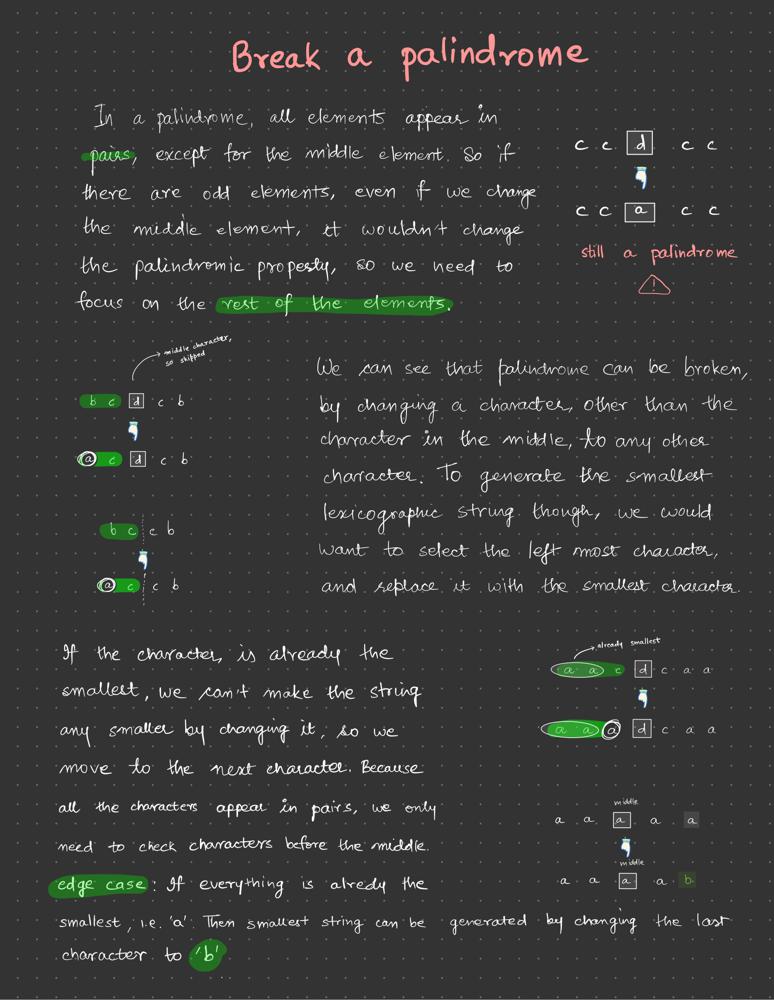 Break a palindrome
In a palindrome, all elements appear in
pairs, except for the middle element. So if
there are odd elements, even if we change
the middle element, it wouldn't change
the palindromic property, so we need to
focus on the rest of the elements.
c c d c c
c c a c c
still a palindrome
!
middle character,
so skipped
b c d c b
a c d c b
b c c b
a c c b
We can see that palindrome can be broken,
by changing a character, other than the
character in the middle, to any other
character. To generate the smallest
lexicographic string though, we would
want to select the left most character,
and replace it with the smallest character
If the character, is already the
smallest, we can't make the string
any smaller by changing it, so we
move to the next character. Because
all the characters appear in pairs, we only
need to check characters before the middle.
already smallest
a a c d c a a
a a a d c a a
middle
a a a a a
middle
a a a a b
edge case: If everything is alredy the
smallest, i.e. 'a'. Then smallest string can be generated by changing the last
character to 'b'